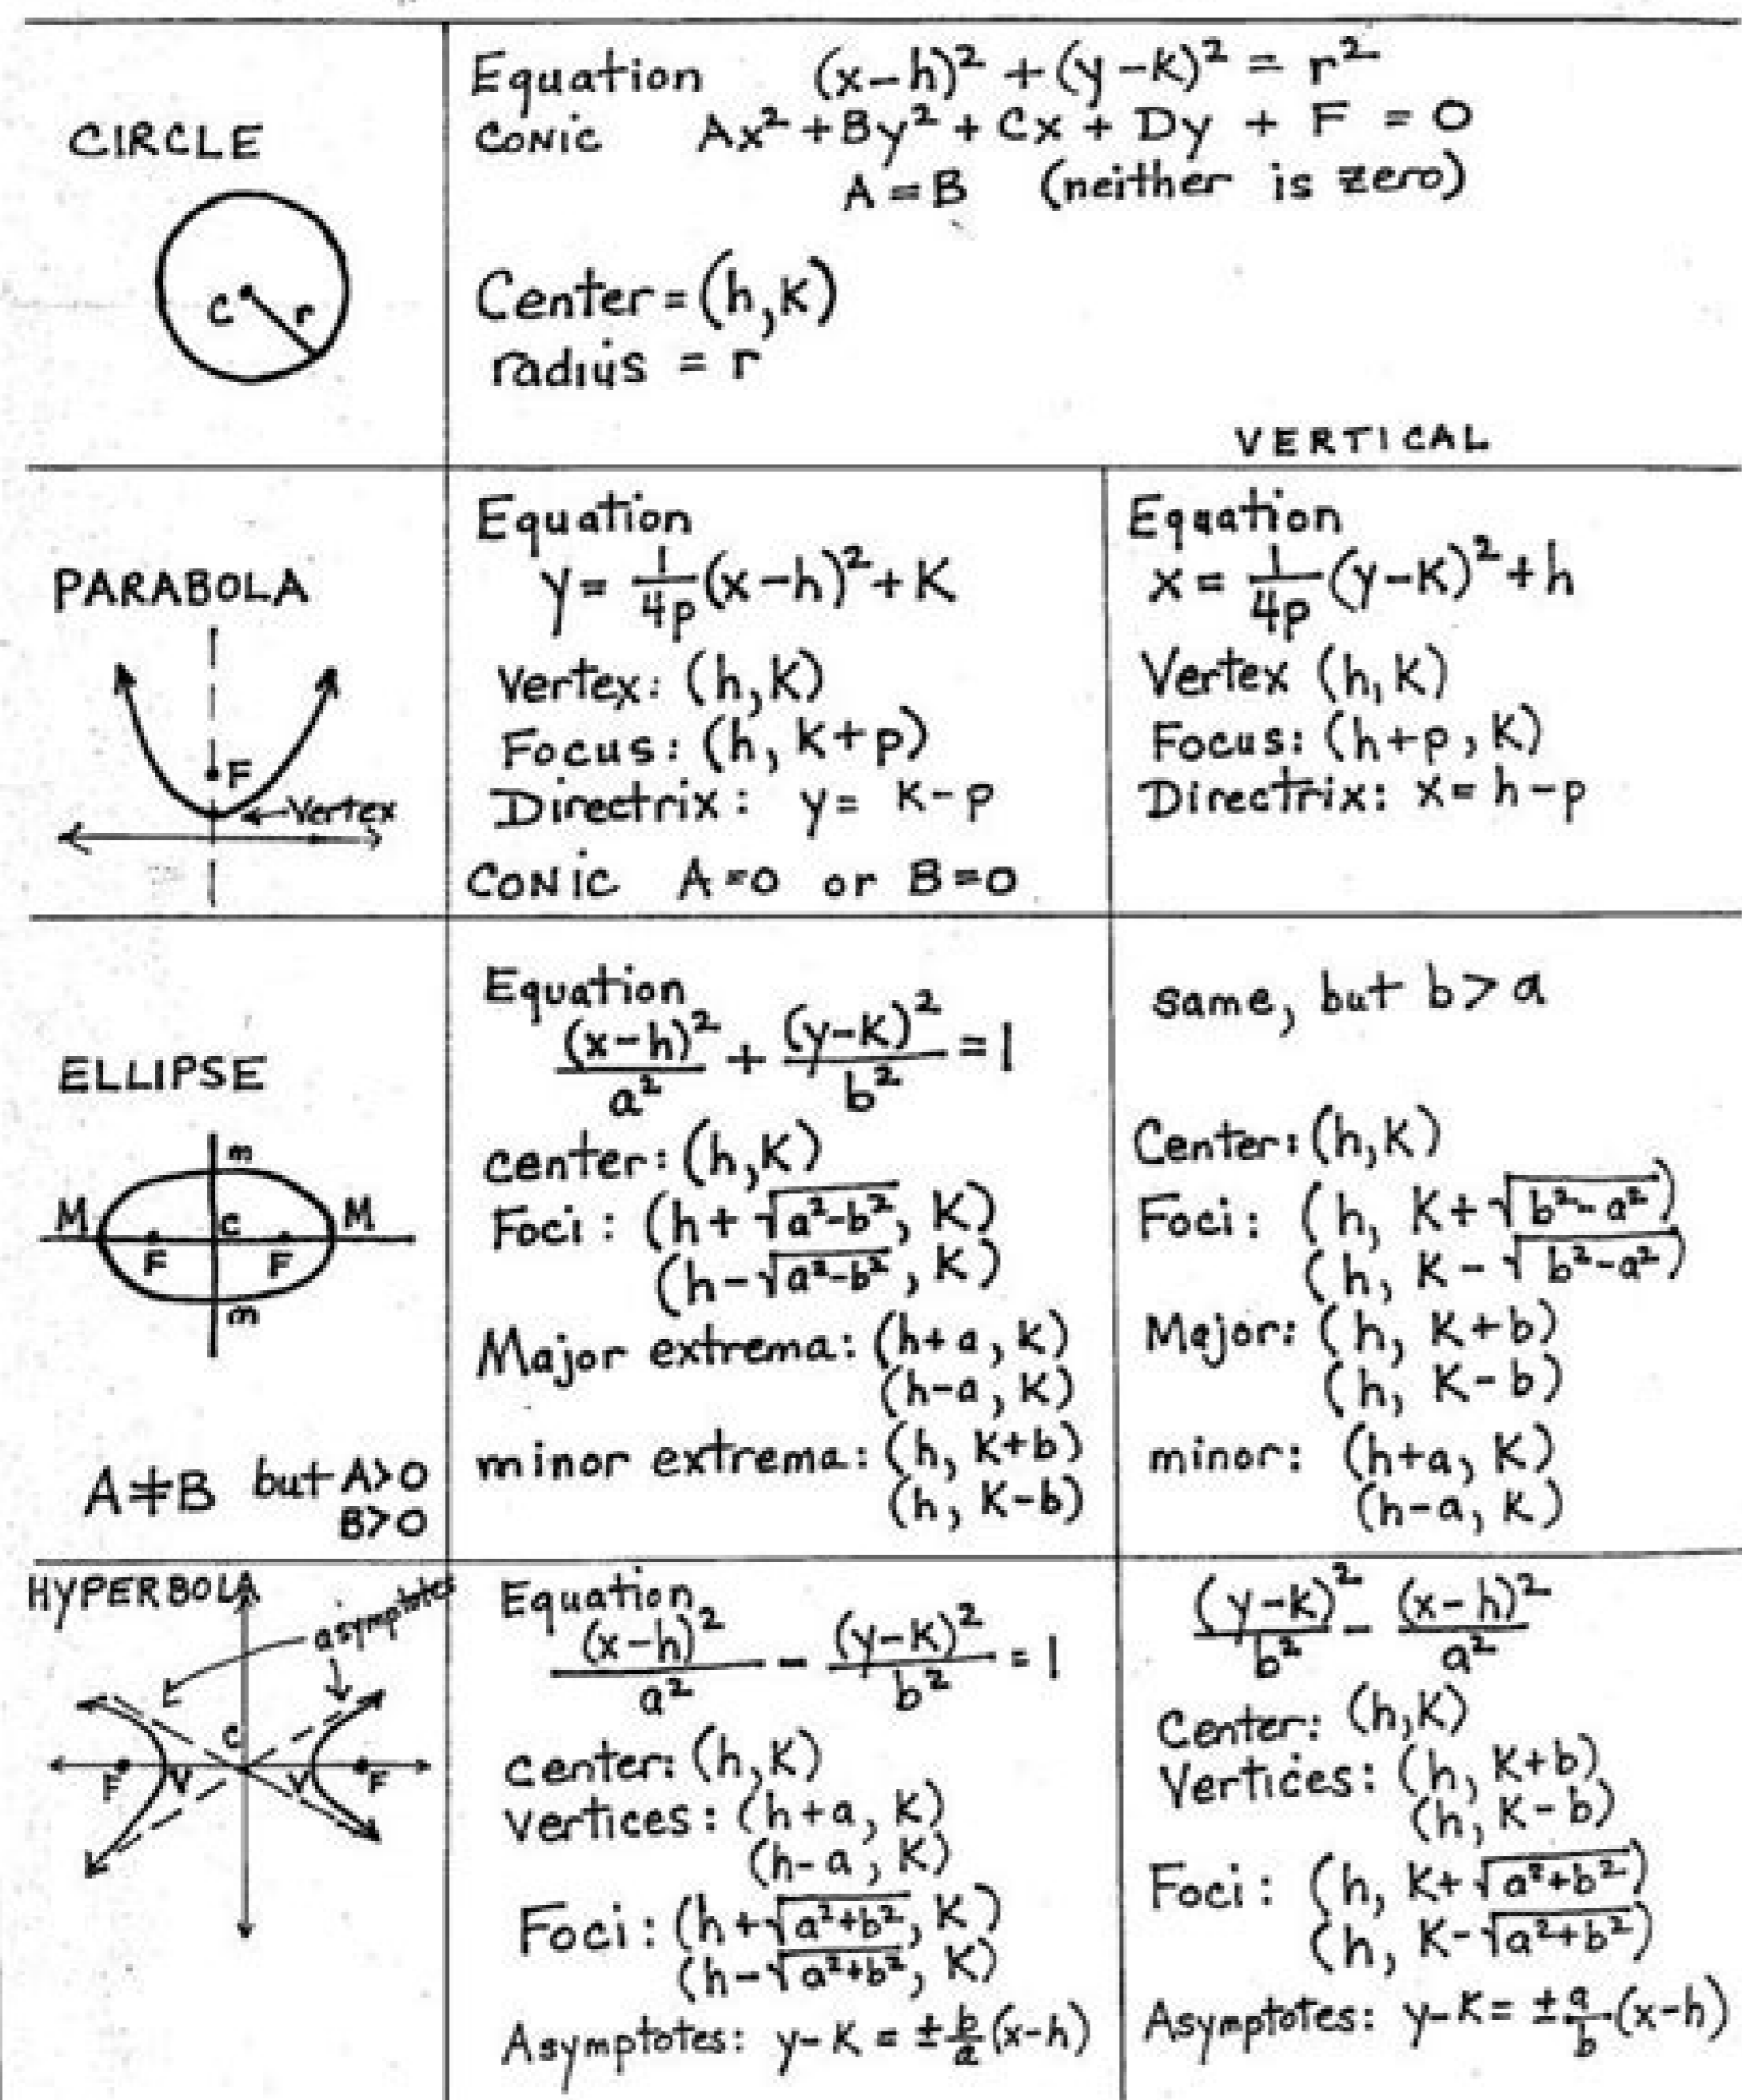 CIRCLE
C
r
Equation (x-h)² + (y-k)² = r²
CONIC Ax² + By² + Cx + Dy + F = 0
A = B (neither is zero)
Center = (h,k)
radius = r
VERTICAL
PARABOLA
F
Vertex
Equation
y = 1/4p (x-h)² + K
Vertex: (h,k)
Focus: (h, k+p)
Directrix: y = K-p
CONIC A=0 or B=0
Equation
x = 1/4p (y-K)² + h
Vertex (h,k)
Focus: (h+p, K)
Directrix: x = h-p
ELLIPSE
m
M C M
F F
m
A≠B but A>0
B>0
Equation
(x-h)²/a² + (y-K)²/b² = 1
center: (h,K)
Foci: (h+√a²-b², K)
(h-√a²-b², K)
Major extrema: (h+a, K)
(h-a, K)
minor extrema: (h, K+b)
(h, K-b)
same, but b > a
Center: (h,K)
Foci: (h, K+√b²-a²)
(h, K-√b²-a²)
Major: (h, K+b)
(h, K-b)
minor: (h+a, K)
(h-a, K)
HYPERBOLA
asymptotes
C
F V V F
Equation
(x-h)²/a² - (y-K)²/b² = 1
center: (h,K)
vertices: (h+a, K)
(h-a, K)
Foci: (h+√a²+b², K)
(h-√a²+b², K)
Asymptotes: y-K = ±b/a (x-h)
(y-k)²/b² - (x-h)²/a²
Center: (h,K)
Vertices: (h, K+b)
(h, K-b)
Foci: (h, K+√a²+b²)
(h, K-√a²+b²)
Asymptotes: y-K = ±a/b (x-h)